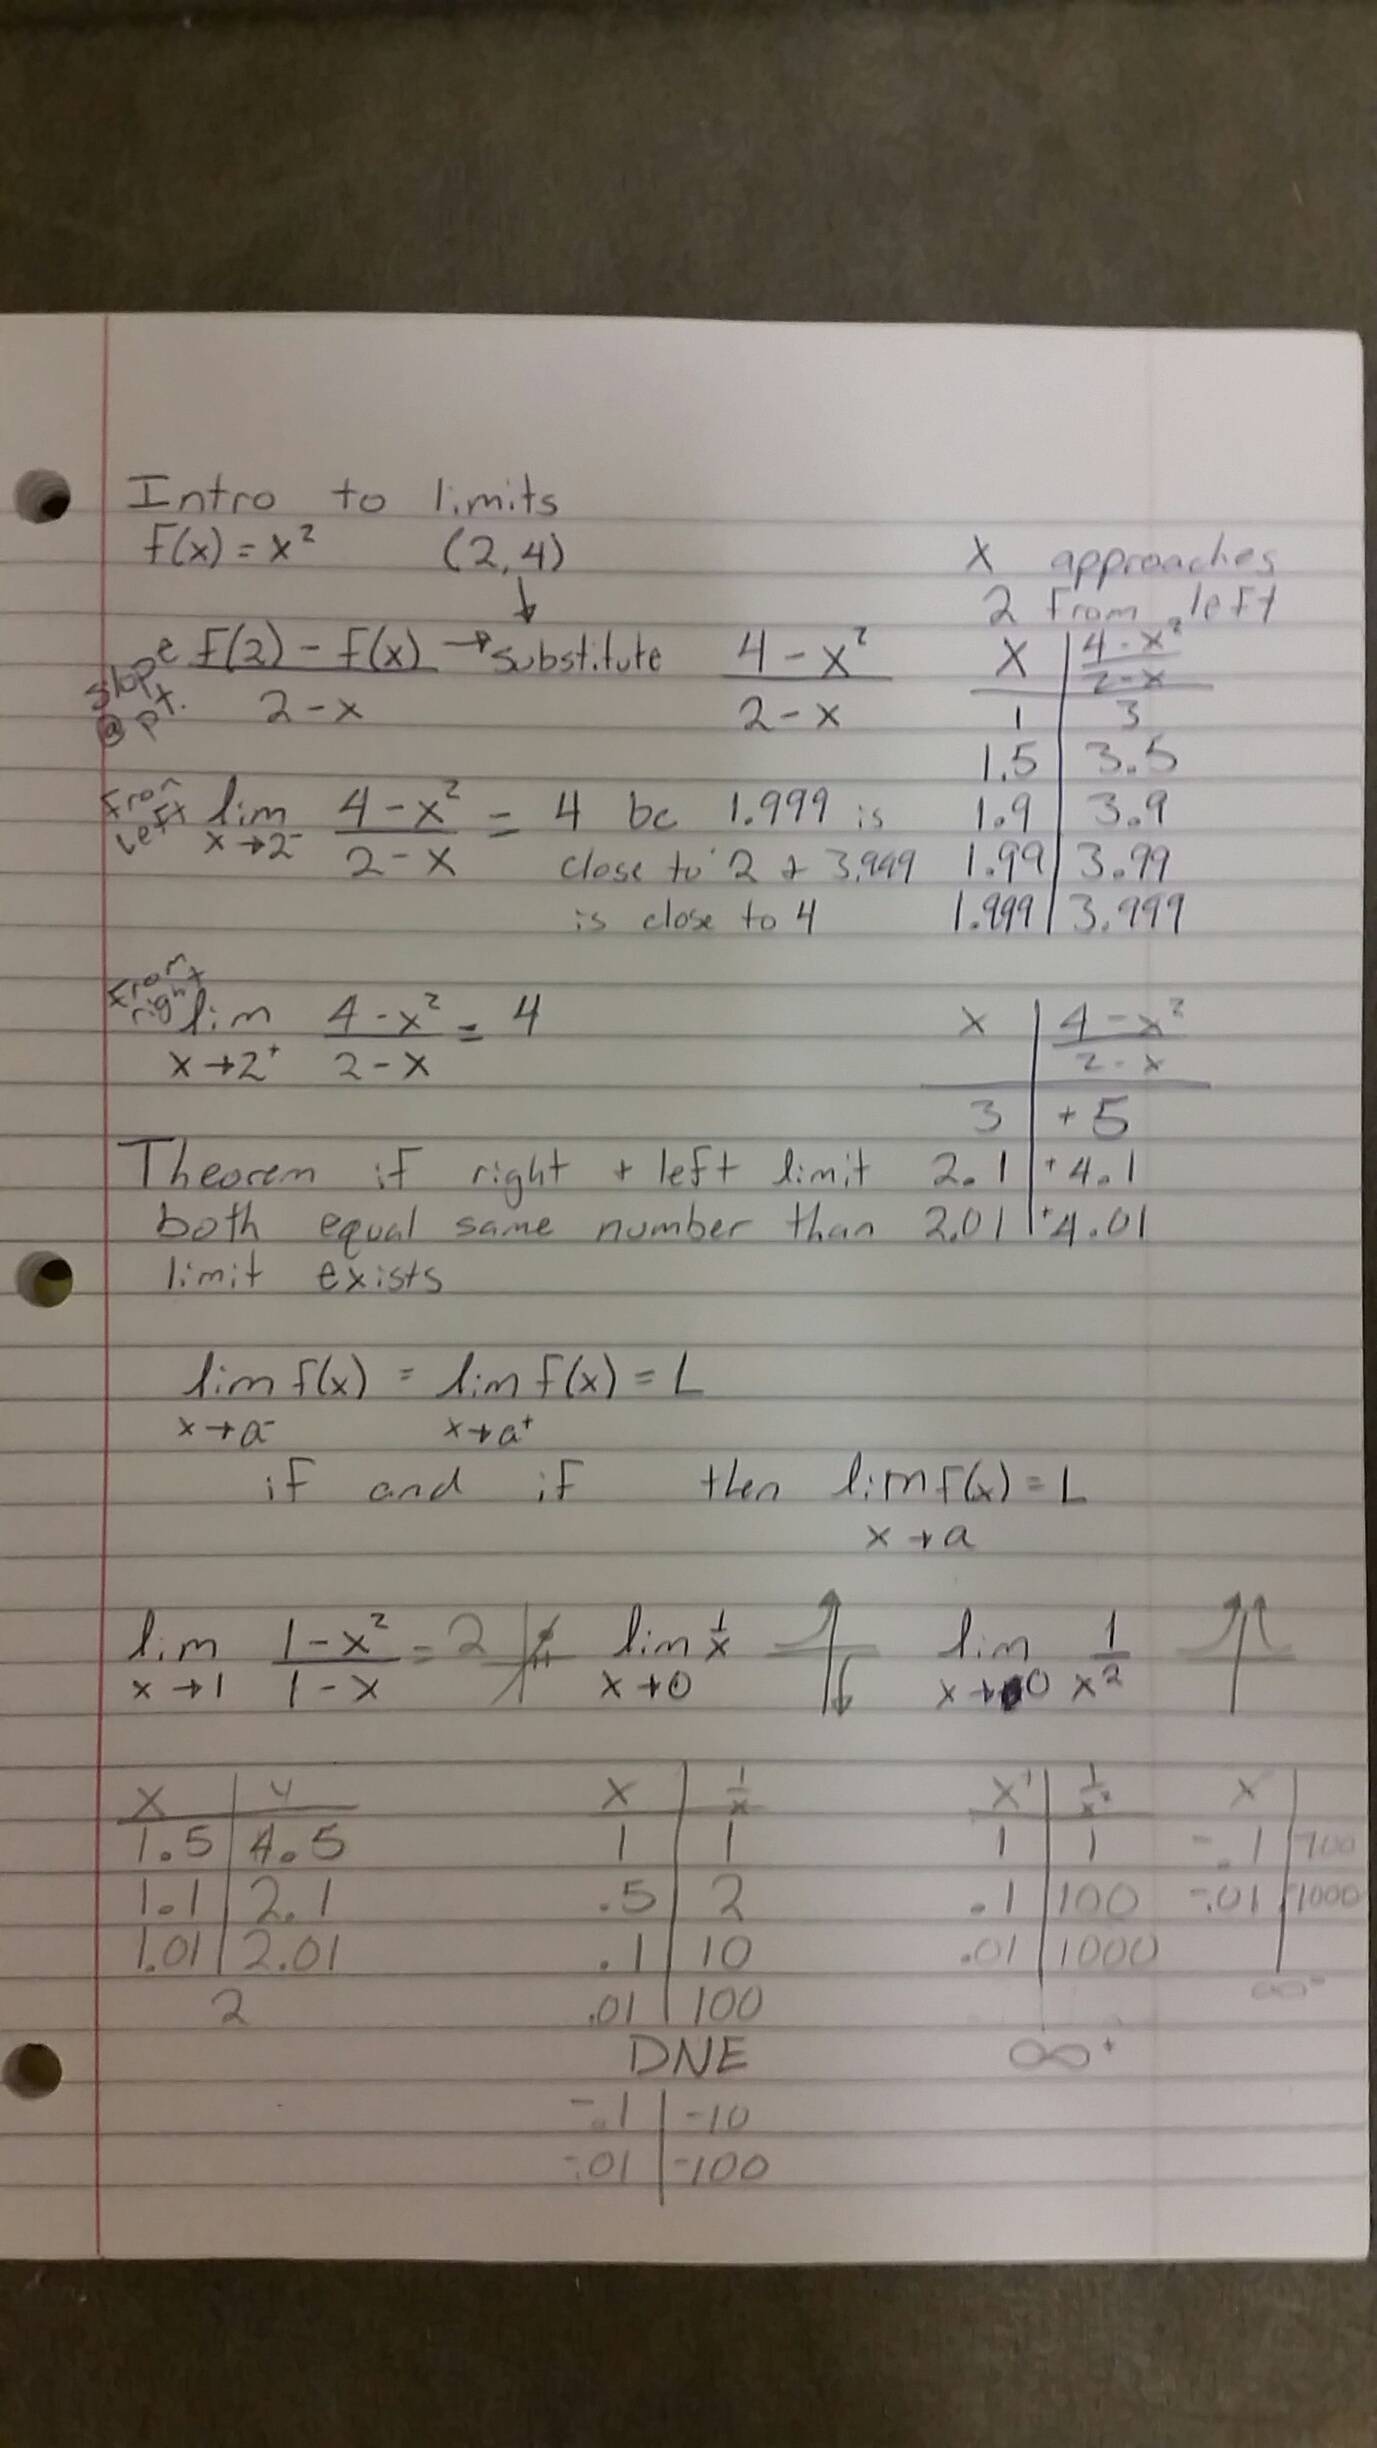 Intro to limits
f(x) = x² (2,4)
x approaches
2 from left
slope @ pt. f(2) - f(x) / 2 - x → substitute 4 - x² / 2 - x
x | 4 - x² / 2 - x
1 | 3
1.5 | 3.5
1.9 | 3.9
1.99 | 3.99
1.999 | 3.999
From Left lim x→2⁻ 4 - x² / 2 - x = 4 bc 1.999 is
close to 2 + 3.999
is close to 4
From right lim x→2⁺ 4 - x² / 2 - x = 4
x | 4 - x² / 2 - x
3 | + 5
2.1 | + 4.1
2.01 | + 4.01
Theorem if right + left limit
both equal same number than
limit exists
lim x→a⁻ f(x) = lim x→a⁺ f(x) = L
if and if then lim x→a f(x) = L
lim x→1 1 - x² / 1 - x = 2 lim x→0 1/x lim x→0 1/x²
x | y
1.5 | 4.5
1.1 | 2.1
1.01 | 2.01
2
x | 1/x
1 | 1
.5 | 2
.1 | 10
.01 | 100
DNE
-.1 | -10
-.01 | -100
x⁺ | 1/x²
1 | 1
.1 | 100
.01 | 1000
∞⁺
x⁻ |
-.1 | 100
-.01 | 1000
∞⁻